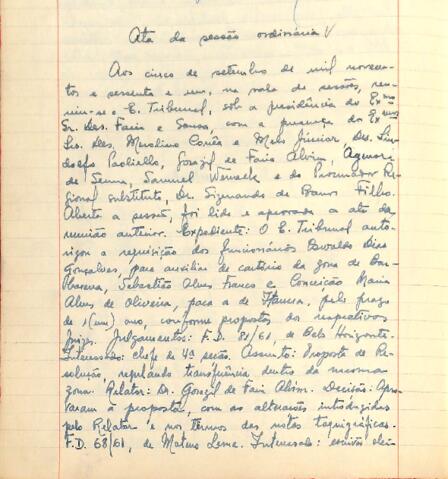 Ata da sessão ordinária
Aos cinco de setembro de mil novecen-
tos e sessenta e um, na sala de sessões, reu-
niu-se o E. Tribunal, sob a presidência do Exmo
Sr. Des. Faria e Sousa, com a presença dos Exmos
Srs. Des. Merolino Corrêa e Melo Júnior, Drs. Lin-
dolfo Paoliello, Gorazil de Faria Alvim,
de Senna, Samuel Werneck e do Procurador Re-
gional substituto, Dr. Sigmundo de Barros Filho.
Aberta a sessão, foi lida e aprovada a ata da
reunião anterior. Expediente: O E. Tribunal auto-
rizou a requisição dos funcionários Oswaldo Dias
Gonçalves, para auxiliar de cartório da zona de Bar-
bacena, Sebastião Alves Franco e Conceição Maria
Alves de Oliveira, para a de Itaúna, pelo prazo
de 1 (um) ano, conforme propostas dos respectivos
Juizes. Julgamentos: F.D. 81/61, de Belo Horizonte.
Interessado: chefe da 4ª secão. Assunto: Proposta de Re-
solução, regulando transferência dentro da mesma
zona. Relator: Dr. Gorazil de Faria Alvim. Decisão: Apro-
varam a proposta, com as alterações introduzidas
pelo Relator e nos termos das notas taquigráficas.
F.D. 68/61, de Mateus Leme. Interessado: escrivão elei-